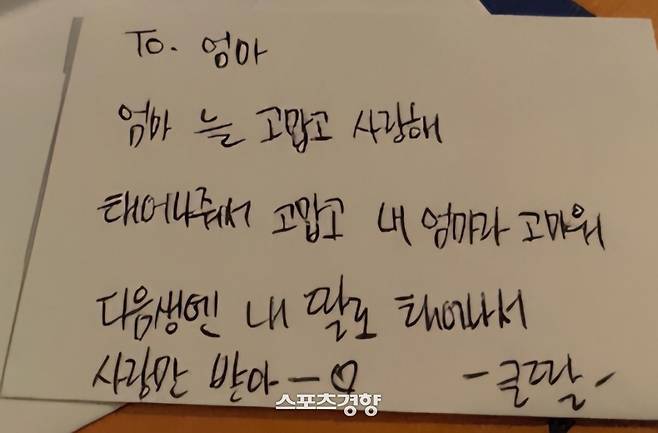 To. 엄마
엄마 늘 고맙고 사랑해
태어나줘서 고맙고 내 엄마라 고마워
다음생엔 내 딸로 태어나서
사랑만 받아 - ♡ - 큰딸 -
스포츠경향